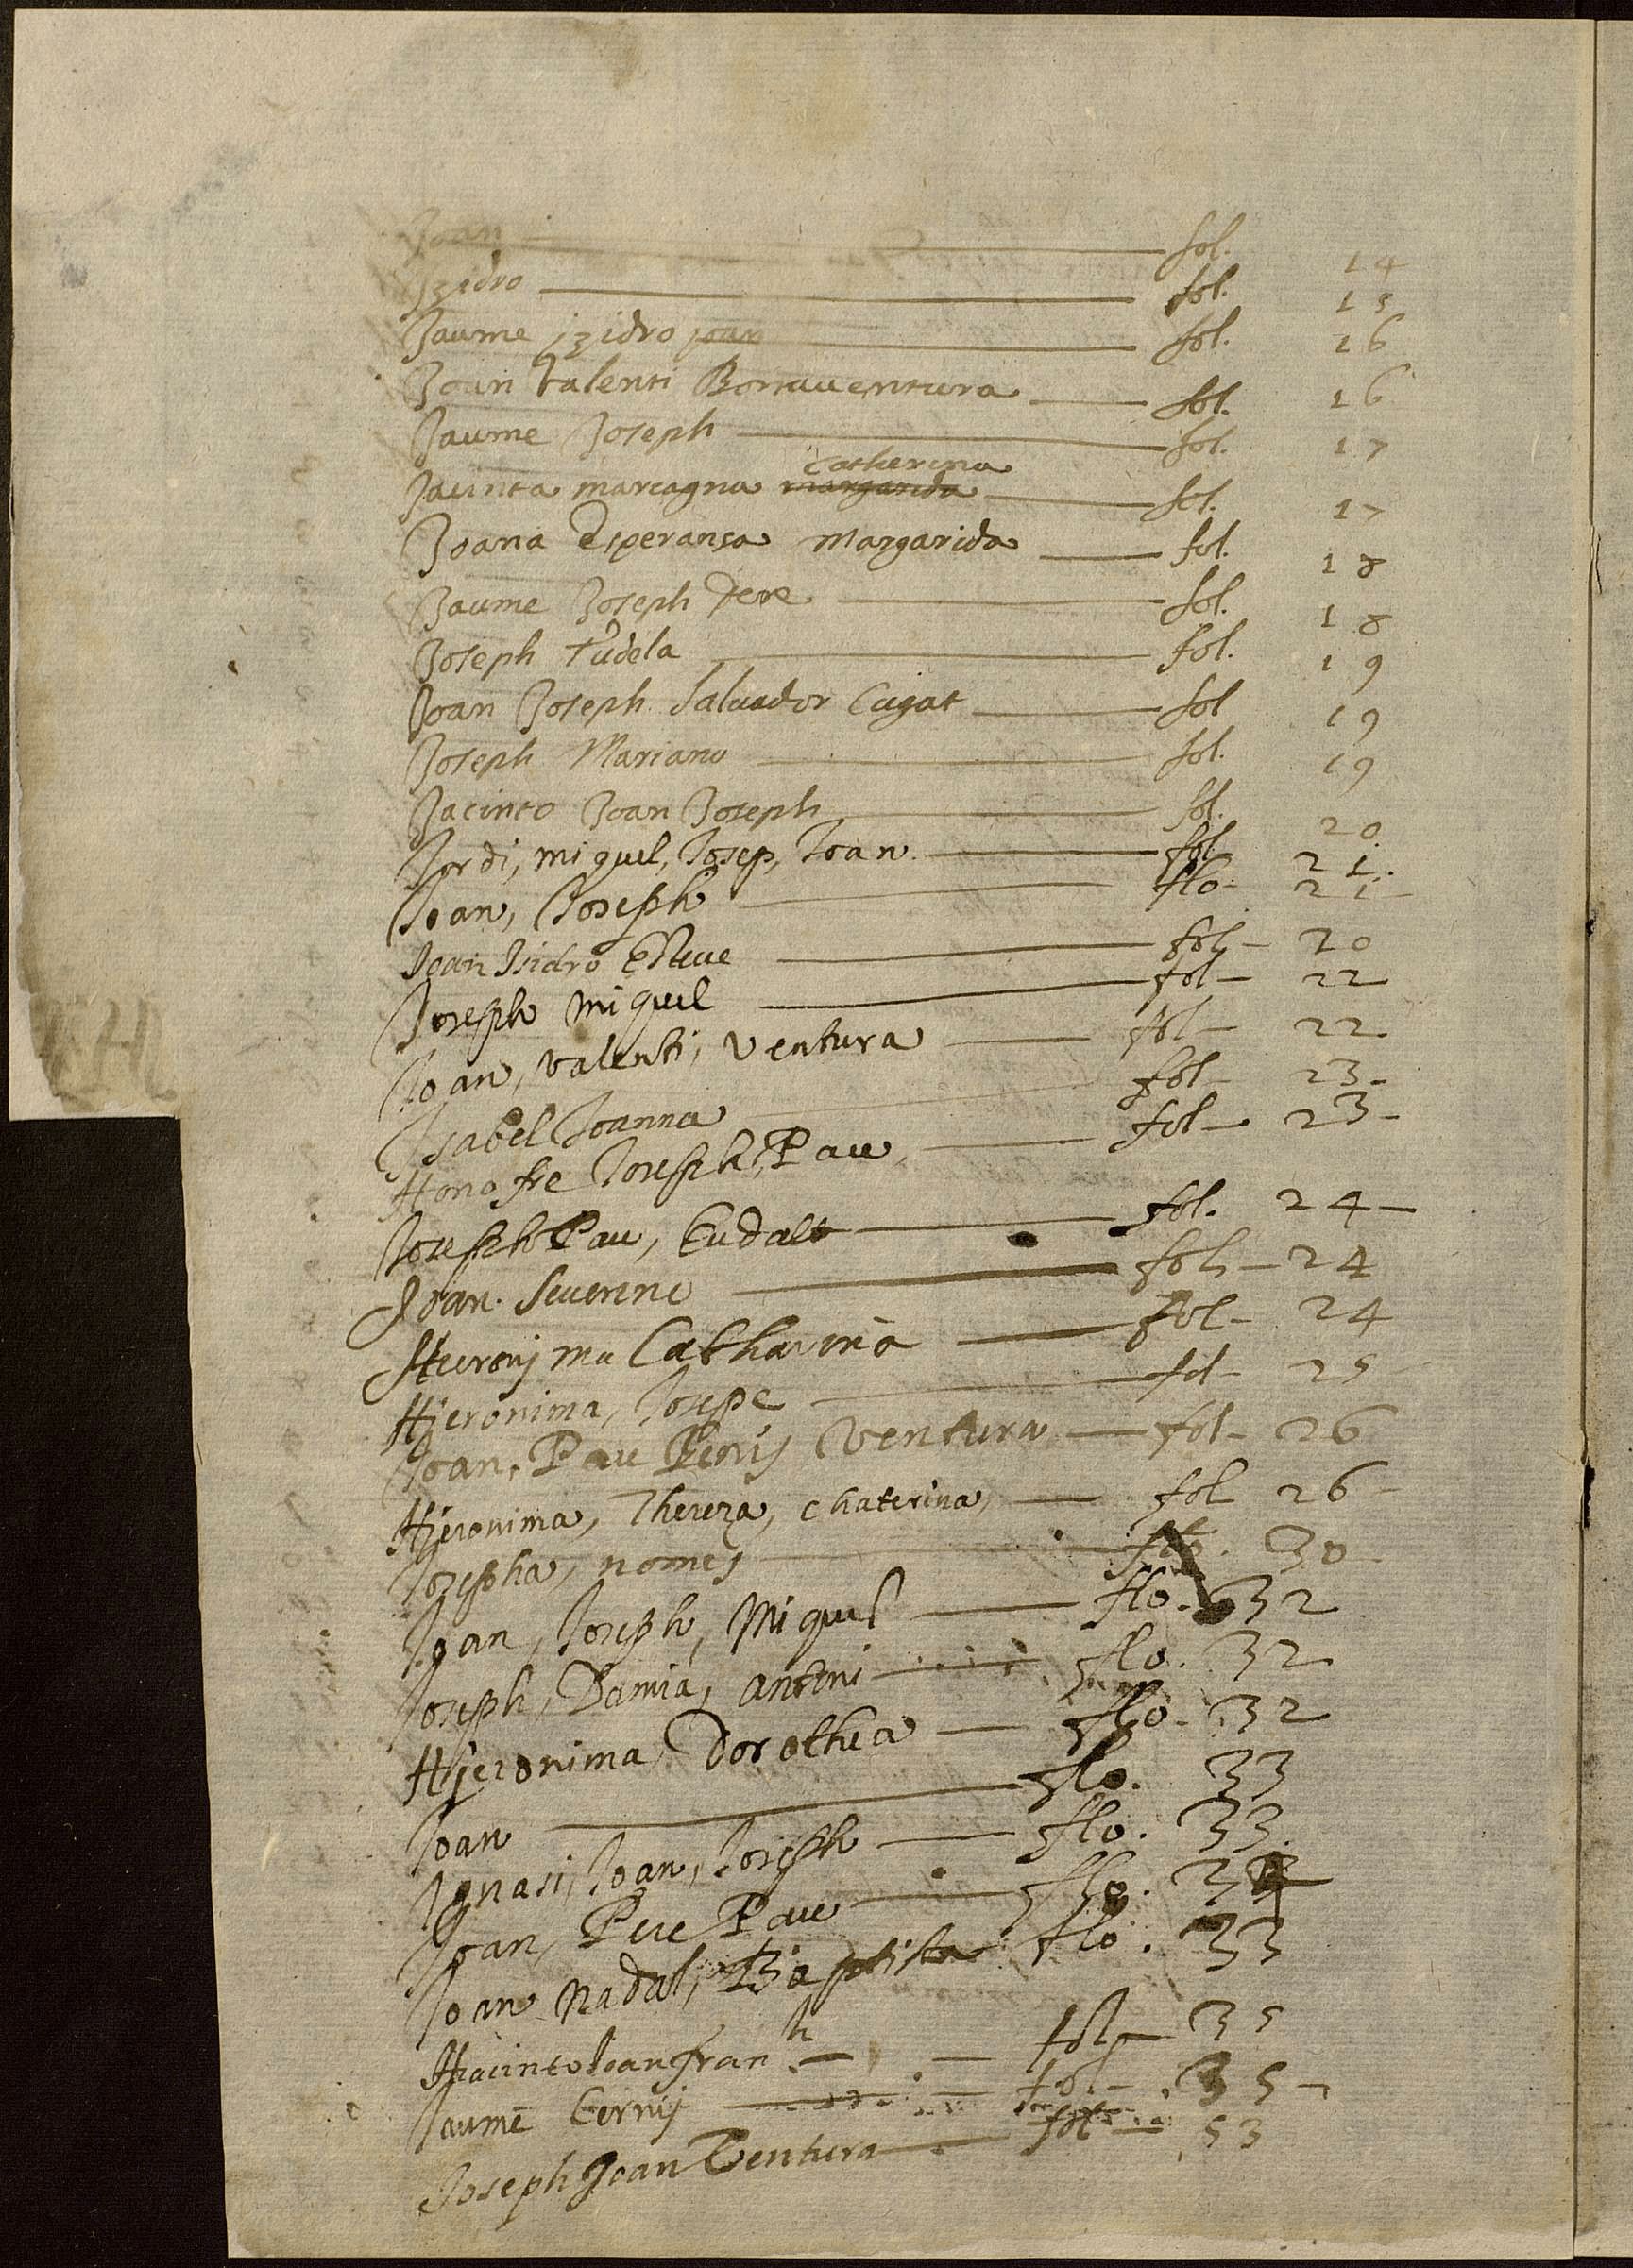 Joan fol. 14
Izidro fol. 15
Jaume izidro joan fol. 16
Joan valenti Bonaventura fol. 16
Jaume Joseph fol. 17
Catherina
Jacinta marcagna margarida fol. 17
Joana Esperansa Margarida fol. 18
Jaume Joseph Pere fol. 18
Joseph Tudela fol. 19
Joan Joseph Salvador Cugat fol 19
Joseph Mariano fol. 19
Jacinto Joan Joseph fol. 20
Jordi, miquel, Josep, Joan. fol 21.
Joan, Joseph flo- 21-
Joan Isidro Esteve fol - 20
Joseph miquel fol - 22
Joan, valenti, ventura fol - 22
Isabel Joanna fol - 23-
Honofre Joseph, Pau fol - 23-
Joseph Pau, Eudalt fol. 24-
Joan. Severine fol - 24
Hieronjma Catharina fol - 24
Hjeronima, Josepe fol - 25
Joan, Pau ventura fol - 26
Hjeronima, Thereza, chaterina, fol 26-
Josepha, nomes 30-
Joan, Joseph, Miquel flo. 32
Joseph, Damia, antoni flo. 32
Hjeronima Dorothea flo. 32
Joan flo. 33
Ignasi, Joan, Joseph flo. 33.
Joan, Pere Pau flo.
Joan Nadal, Baptista flo. 33
Hiacinto Joan fran h fol 35
Jaume fol - 35-
Joseph Joan Ventura fol - 53